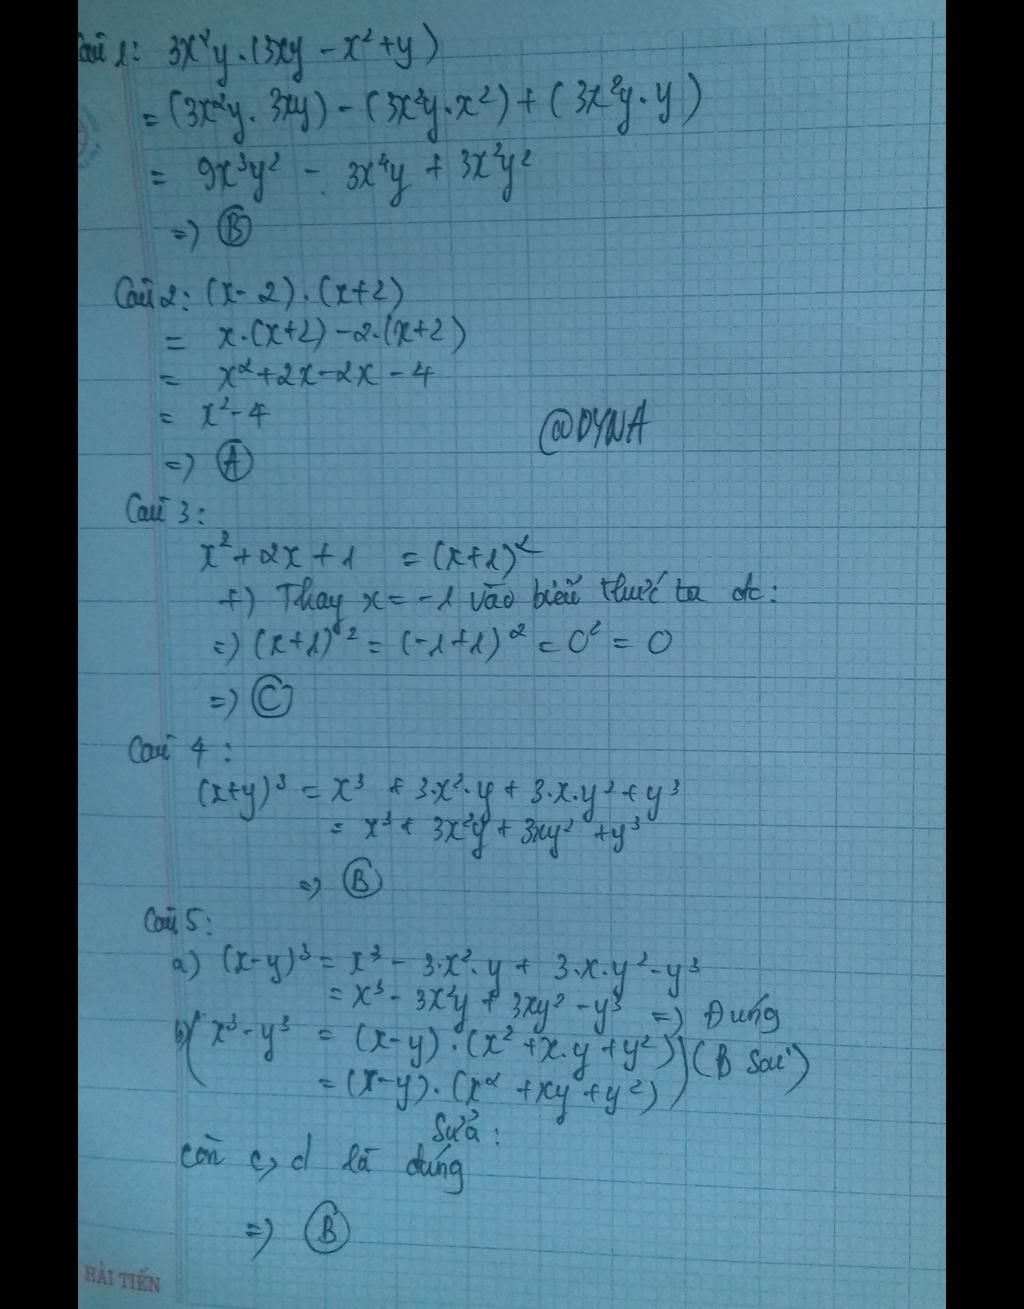 Câu 1: 3x²y.(3xy - x² + y)
= (3x²y. 3xy) - (3x²y.x²) + (3x²y.y)
= 9x³y² - 3x⁴y + 3x²y²
=> B
Câu 2: (x-2).(x+2)
= x.(x+2) - 2.(x+2)
= x² + 2x - 2x - 4
= x² - 4
@DYNA
=> A
Câu 3:
x² + 2x + 1 = (x+1)²
+) Thay x = -1 vào biểu thức ta đc:
=> (x+1)² = (-1+1)² = 0² = 0
=> C
Câu 4:
(x+y)³ = x³ + 3.x².y + 3.x.y² + y³
= x³ + 3x²y + 3xy² + y³
=> B
Câu 5:
a) (x-y)³ = x³ - 3.x².y + 3.x.y² - y³
= x³ - 3x²y + 3xy² - y³ => Đúng
b) (x³ - y³ = (x-y).(x² + x.y + y²)
= (x-y).(x² + xy + y²)) (B sai)
Sửa:
Còn c, d là đúng
=> B
HẢI TIẾN